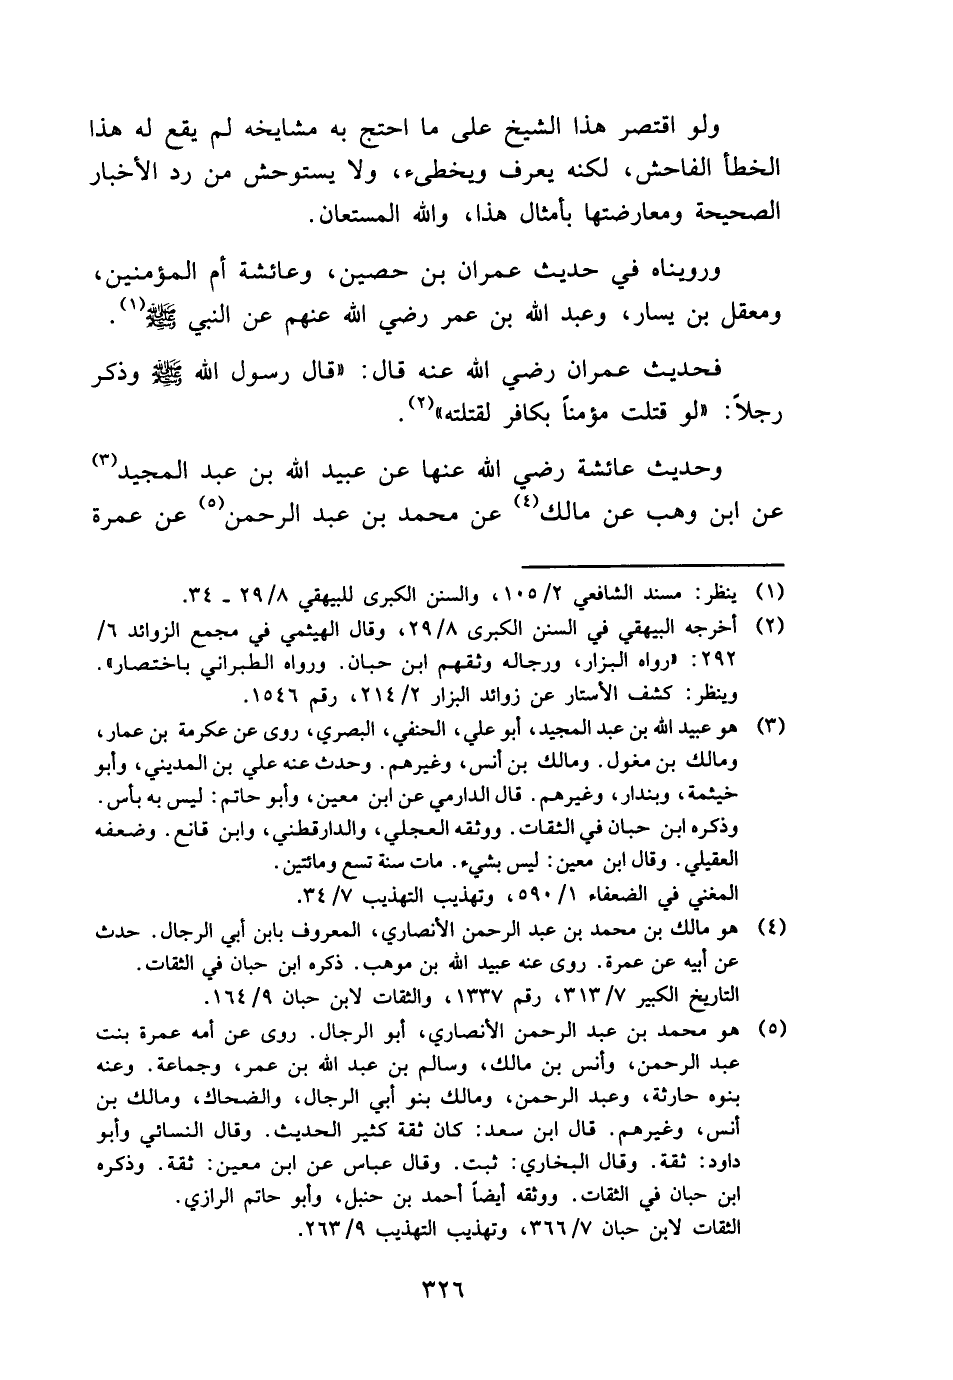 ولو اقتصر هذا الشيخ على ما احتج به مشايخه لم يقع له هذا
الخطأ الفاحش، لكنه يعرف ويخطىء، ولا يستوحش من رد الأخبار
الصحيحة ومعارضتها بأمثال هذا، والله المستعان.
ورويناه في حديث عمران بن حصين، وعائشة أم المؤمنين،
ومعقل بن يسار، وعبد الله بن عمر رضي الله عنهم عن النبي ﷺ(١).
فحديث عمران رضي الله عنه قال: «قال رسول الله ﷺ وذكر
رجلاً: «لو قتلت مؤمناً بكافر لقتلته»(٢).
وحديث عائشة رضي الله عنها عن عبيد الله بن عبد المجيد(٣)
عن ابن وهب عن مالك(٤) عن محمد بن عبد الرحمن(٥) عن عمرة
(١) ينظر: مسند الشافعي ١٠٥/٢، والسنن الكبرى للبيهقي ٢٩/٨ ـ ٣٤.
(٢) أخرجه البيهقي في السنن الكبرى ٢٩/٨، وقال الهيثمي في مجمع الزوائد ٦/
٢٩٢: «رواه البزار، ورجاله وثقهم ابن حبان. ورواه الطبراني باختصار».
وينظر: كشف الأستار عن زوائد البزار ٢١٤/٢، رقم ١٥٤٦.
(٣) هو عبيد الله بن عبد المجيد، أبو علي، الحنفي، البصري، روى عن عكرمة بن عمار،
ومالك بن مغول. ومالك بن أنس، وغيرهم. وحدث عنه علي بن المديني، وأبو
خيثمة، وبندار، وغيرهم. قال الدارمي عن ابن معين، وأبو حاتم: ليس به بأس.
وذكره ابن حبان في الثقات. ووثقه العجلي، والدارقطني، وابن قانع. وضعفه
العقيلي. وقال ابن معين: ليس بشيء. مات سنة تسع ومائتين.
المغني في الضعفاء ٥٩٠/١، وتهذيب التهذيب ٣٤/٧.
(٤) هو مالك بن محمد بن عبد الرحمن الأنصاري، المعروف بابن أبي الرجال. حدث
عن أبيه عن عمرة. روى عنه عبيد الله بن موهب. ذكره ابن حبان في الثقات.
التاريخ الكبير ٣١٣/٧، رقم ١٣٣٧، والثقات لابن حبان ١٦٤/٩.
(٥) هو محمد بن عبد الرحمن الأنصاري، أبو الرجال. روى عن أمه عمرة بنت
عبد الرحمن، وأنس بن مالك، وسالم بن عبد الله بن عمر، وجماعة. وعنه
بنوه حارثة، وعبد الرحمن، ومالك بنو أبي الرجال، والضحاك، ومالك بن
أنس، وغيرهم. قال ابن سعد: كان ثقة كثير الحديث. وقال النسائي وأبو
داود: ثقة. وقال البخاري: ثبت. وقال عباس عن ابن معين: ثقة. وذكره
ابن حبان في الثقات. ووثقه أيضاً أحمد بن حنبل، وأبو حاتم الرازي.
الثقات لابن حبان ٣٦٦/٧، وتهذيب التهذيب ٢٦٣/٩.
٣٢٦